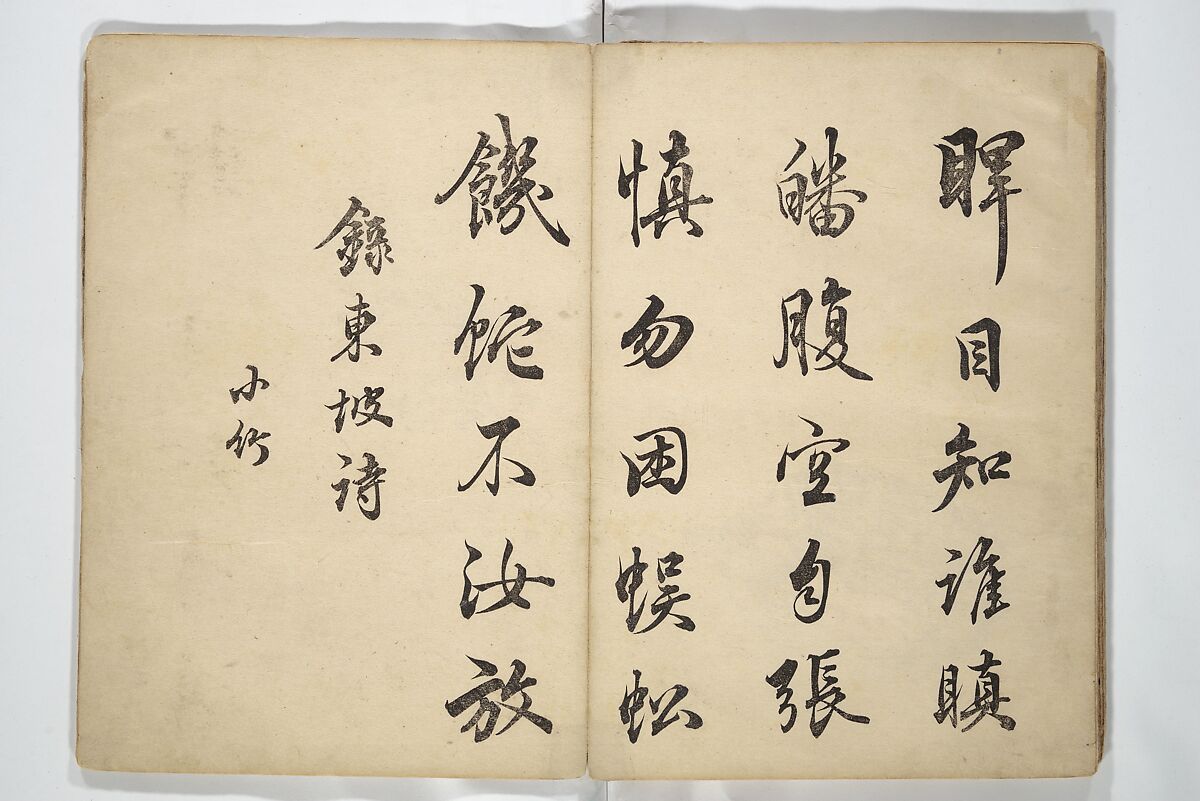 睅目知誰瞋
皤腹空自張
慎勿困蜈蚣
饑蛇不汝放
錄東坡詩
小竹